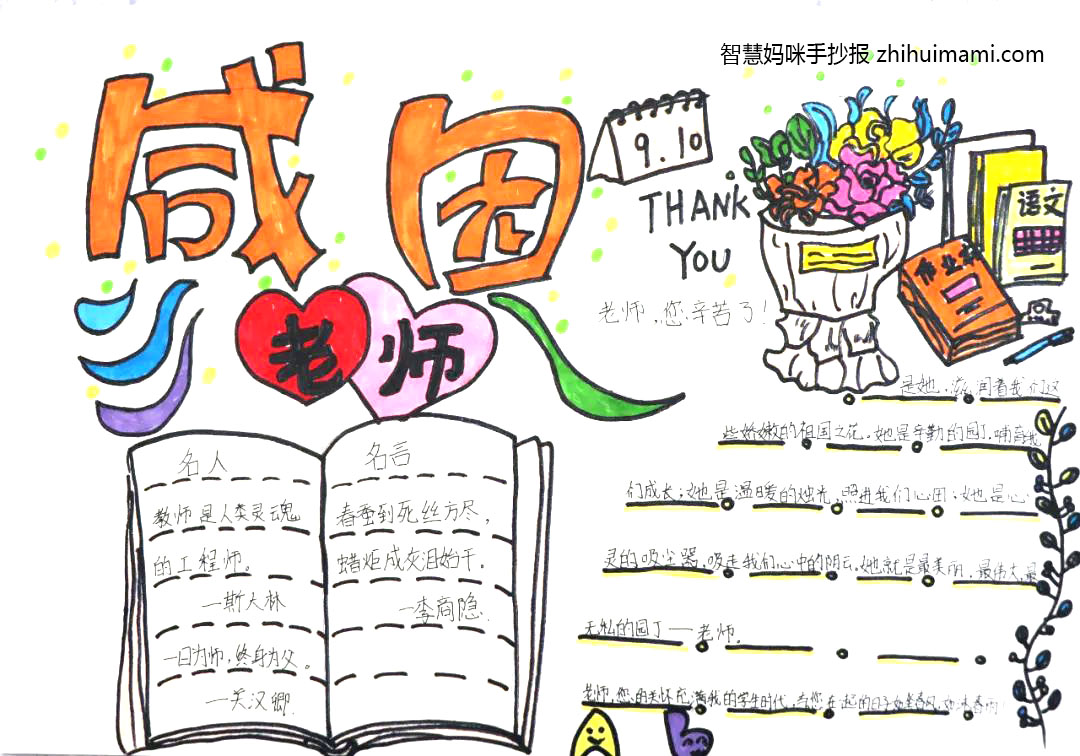 智慧妈咪手抄报 zhihuimami.com
感恩
老师
9.10
THANK
YOU
老师，您辛苦了！
语文
作业本
名人
教师是人类灵魂
的工程师。
—斯大林
一日为师，终身为父。
—关汉卿
名言
春蚕到死丝方尽，
蜡炬成灰泪始干。
—李商隐
是她，滋润着我们这
些娇嫩的祖国之花，她是辛勤的园丁，哺育我
们成长；她是温暖的烛光，照进我们心田；她是心
灵的吸尘器，吸走我们心中的阴云，她就是最美丽，最伟大，最
无私的园丁—老师。
老师，您的关怀充满我的学生时代，与您在一起的日子如春风，如沐春雨